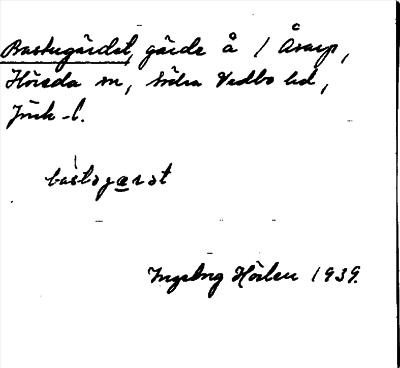 Bastugärdet, gärde å 1 Åsarp,
Höreda sn, Södra Vedbo hd,
Jönk. l.
bastogæṛət
Ingeborg Hörlen 1939.